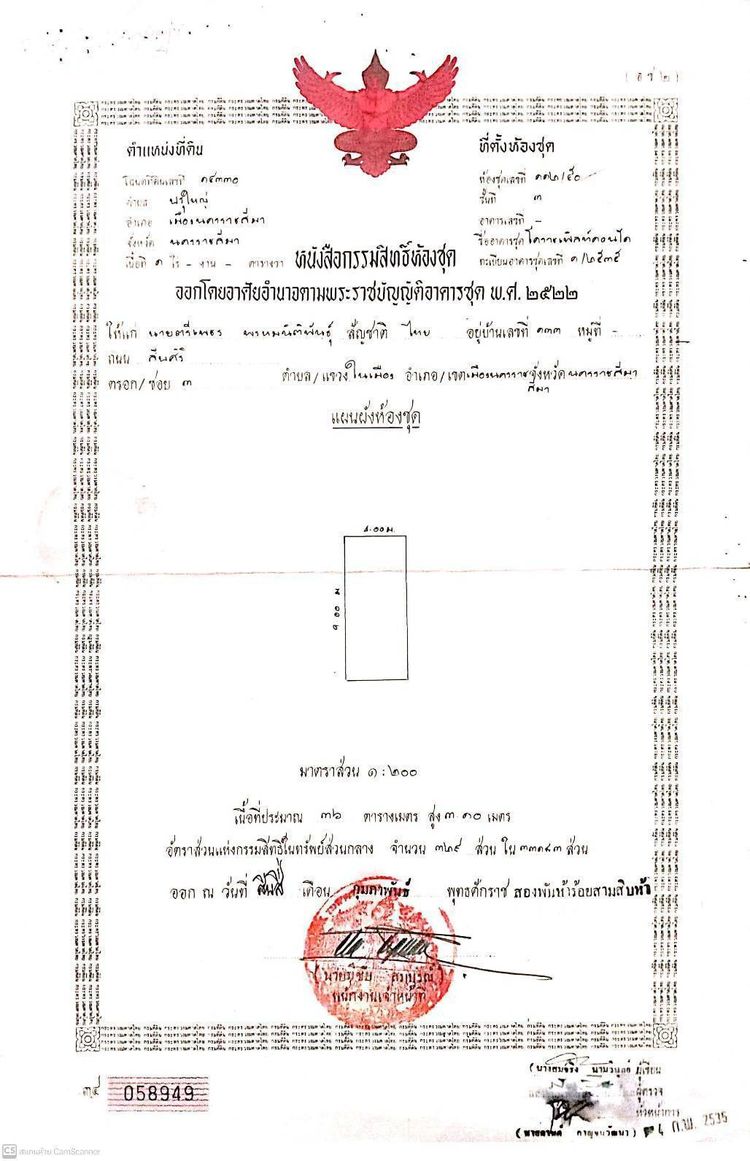 (อ ช ๒)
ตำแหน่งที่ดิน
ที่ตั้งห้องชุด
โฉนดที่ดินเลขที่ ๑๕๓๓๐
ห้องชุดเลขที่ ๑๑๒/๕๐
ตำบล ปรุใหญ่
ชั้นที่ ๓
อำเภอ เมืองนครราชสีมา
อาคารเลขที่ -
จังหวัด นครราชสีมา
ชื่ออาคารชุด โคราชเพิลท์คอนโด
เนื้อที่ ๑ ไร่ - งาน - ตารางวา
หนังสือกรรมสิทธิ์ห้องชุด
ทะเบียนอาคารชุดเลขที่ ๑/๒๕๓๕
ออกโดยอาศัยอำนาจตามพระราชบัญญัติอาคารชุด พ.ศ. ๒๕๒๒
ให้แก่ สัญชาติ ไทย อยู่บ้านเลขที่ ๑๓๓ หมู่ที่ -
ถนน สืบศิริ
ตรอก/ซอย ๓ ตำบล/แขวง ในเมือง อำเภอ/เขต เมืองนครราชสีมา จังหวัด นครราชสีมา
แผนผังห้องชุด
๔.๐๐ ม.
๙.๐๐ ม
มาตราส่วน ๑:๒๐๐
เนื้อที่ประมาณ ๓๖ ตารางเมตร สูง ๓.๑๐ เมตร
อัตราส่วนแห่งกรรมสิทธิ์ในทรัพย์ส่วนกลาง จำนวน ๓๒๙ ส่วน ใน ๓๓๑๘๓ ส่วน
ออก ณ วันที่ สี่ เดือน กุมภาพันธ์ พุทธศักราช สองพันห้าร้อยสามสิบห้า
พนักงานเจ้าหน้าที่
๓๔ 058949
ผู้เขียน
ผู้ตรวจ
หัวหน้าการ
4 ก.พ. 2535
CS สแกนด้วย CamScanner